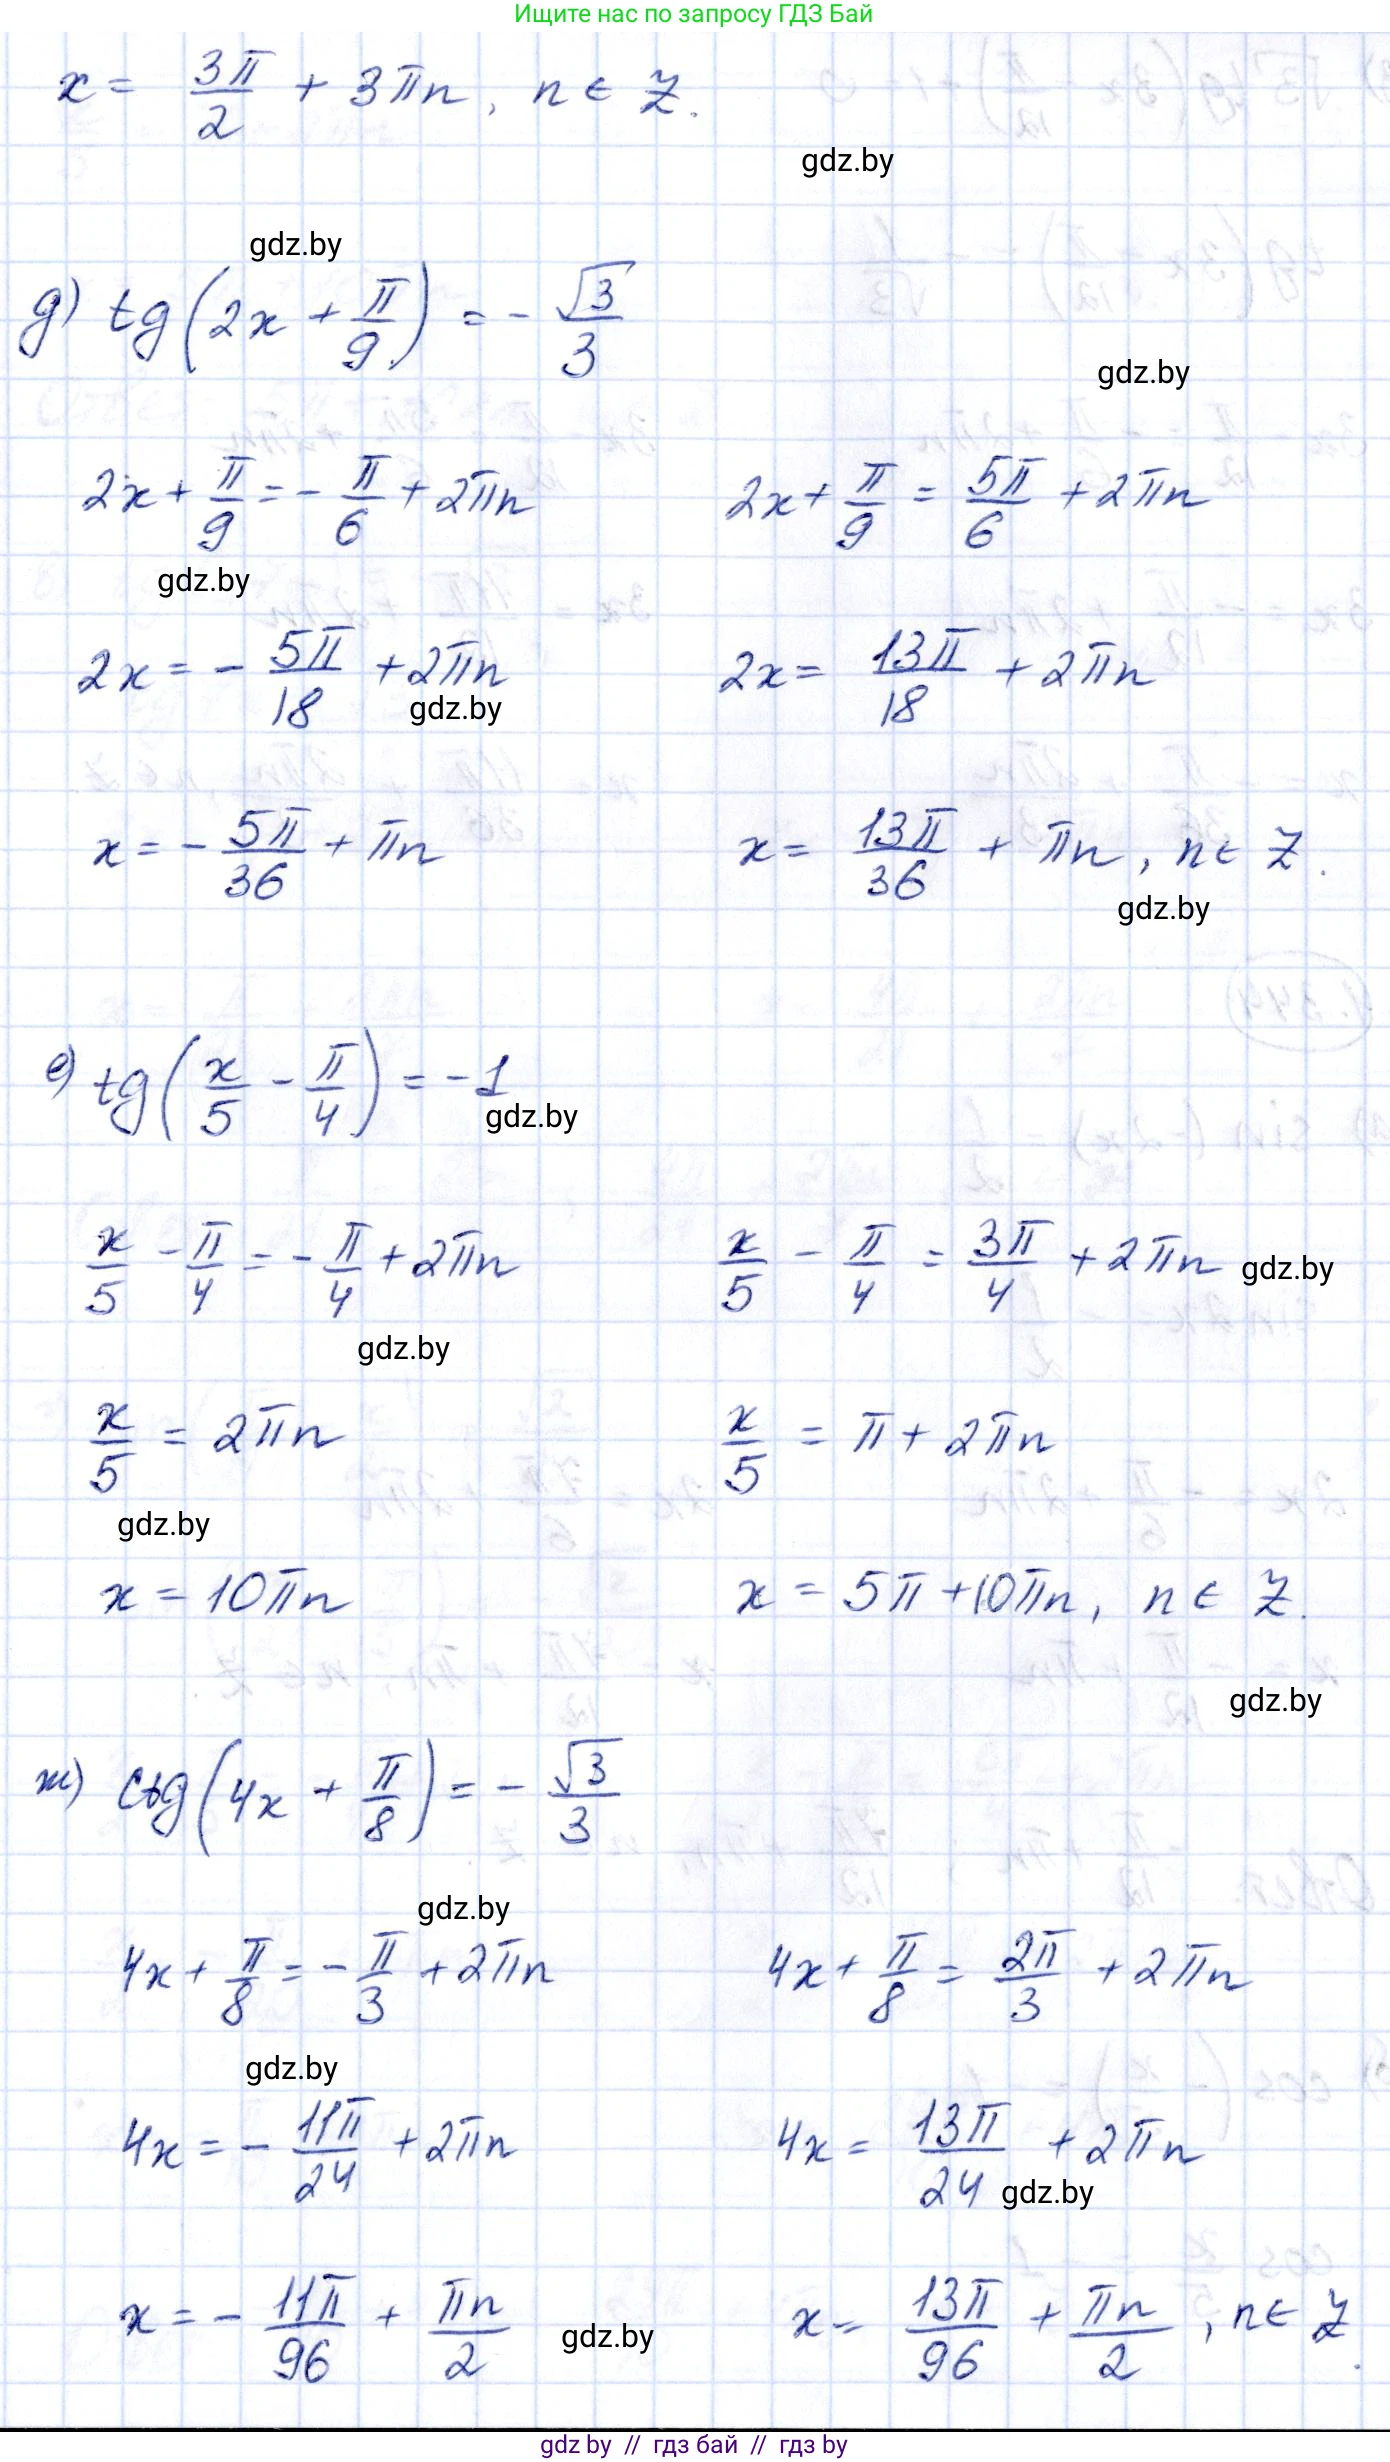 Ищите нас по запросу ГДЗ Бай
x = 3π/2 + 3πn, n ∈ Z.
gdz.by
gdz.by
д) tg(2x + π/9) = - √3/3
gdz.by
2x + π/9 = - π/6 + 2πn 2x + π/9 = 5π/6 + 2πn
gdz.by
2x = - 5π/18 + 2πn 2x = 13π/18 + 2πn
gdz.by
x = - 5π/36 + πn x = 13π/36 + πn, n ∈ Z.
gdz.by
е) tg(x/5 - π/4) = -1
gdz.by
x/5 - π/4 = - π/4 + 2πn x/5 - π/4 = 3π/4 + 2πn
gdz.by
gdz.by
x/5 = 2πn x/5 = π + 2πn
gdz.by
x = 10πn x = 5π + 10πn, n ∈ Z.
gdz.by
ж) ctg(4x + π/8) = - √3/3
gdz.by
4x + π/8 = - π/3 + 2πn 4x + π/8 = 2π/3 + 2πn
gdz.by
4x = - 11π/24 + 2πn 4x = 13π/24 + 2πn
gdz.by
x = - 11π/96 + πn/2 x = 13π/96 + πn/2, n ∈ Z.
gdz.by
gdz by // гдз бай // гдз by